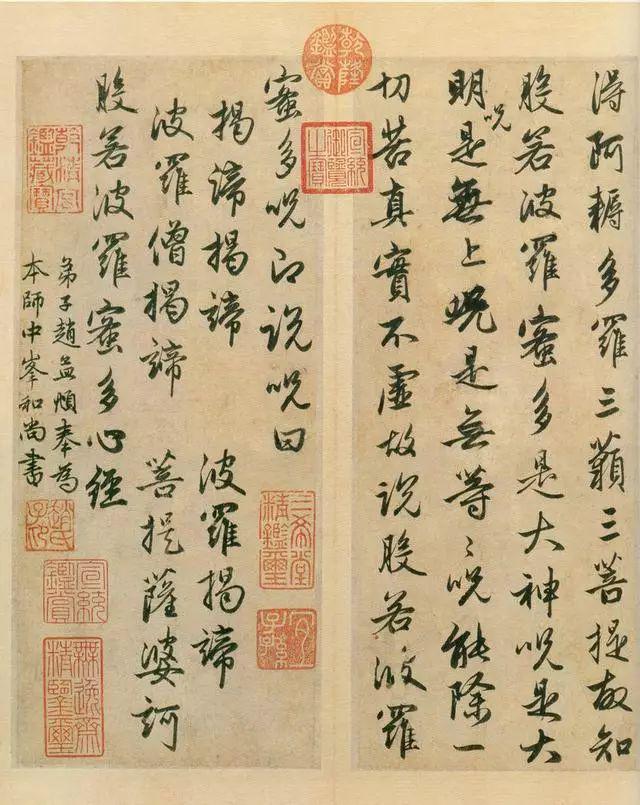 得阿耨多羅三藐三菩提故知
般若波羅蜜多是大神呪是大
明呪是無上呪是無等〻呪能除一
切苦真實不虛故說般若波羅
乾隆鑑賞
宣統御覽之寶
蜜多呪即說呪曰
揭諦揭諦 波羅揭諦
波羅僧揭諦 菩提薩婆訶
般若波羅蜜多心經
弟子趙孟頫奉為
本師中峯和尚書
三希堂精鑑璽
宜子孫
乾清宮鑑藏寶
趙氏子昂
宣統鑑賞
無逸齋精鑒璽